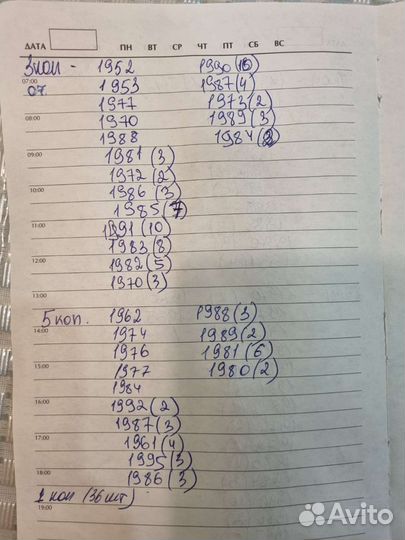 ДАТА ПН ВТ СР ЧТ ПТ СБ ВС
3 коп - 1952 1990 (16)
07:00
07. 1953 1987 (4)
1977 1973 (2)
08:00
1970 1989 (3)
1988 1984 (2)
09:00
1981 (3)
1972 (2)
10:00
1986 (3)
1985 (7)
11:00
1991 (10)
1983 (8)
12:00
1982 (5)
1970 (3)
13:00
5 коп. 1962 1988 (3)
14:00
1974 1989 (2)
1976 1981 (6)
15:00
1977 1980 (2)
1984
16:00
1992 (2)
1987 (3)
17:00
1961 (4)
1995 (3)
18:00
1986 (3)
коп (36 шт)
19:00
Avito